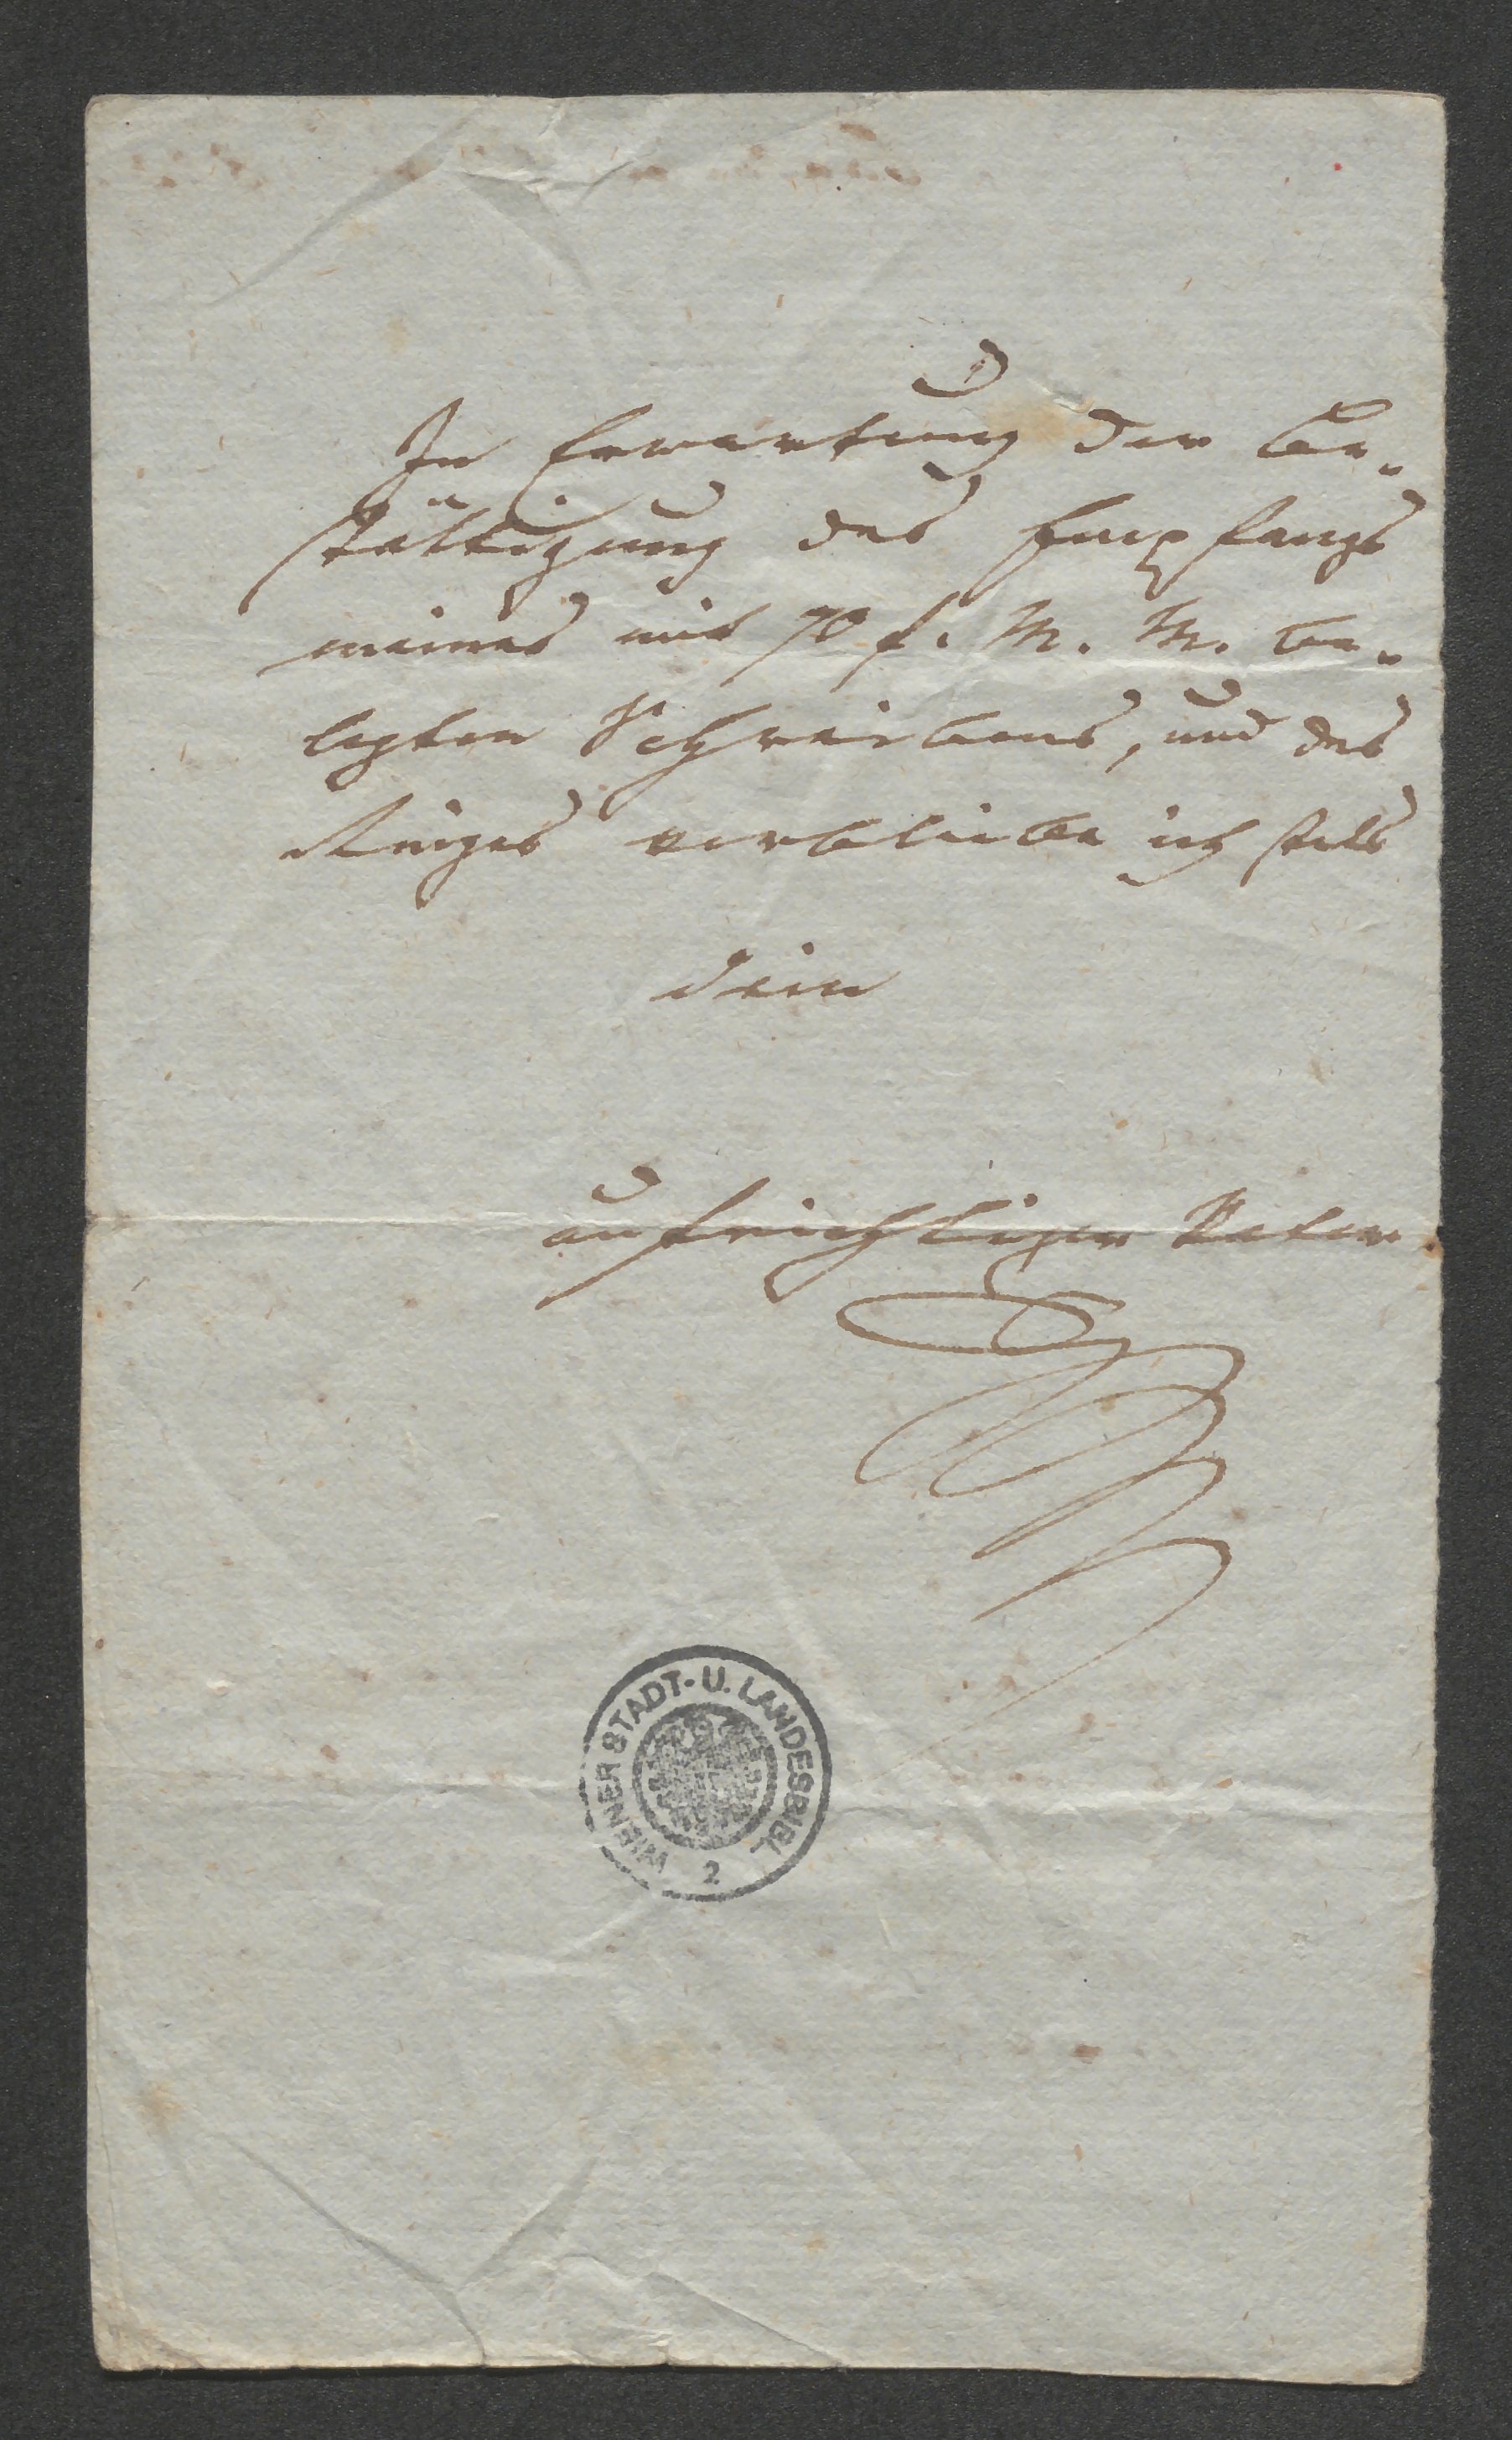 In Erwartung der Be-
stättigung des Empfangs
meines mit 70 f. M. M. be-
legten Schreibens, und des
Ringes verbleibe ich stets
dein
aufrichtiger Vater
WIENER STADT- U. LANDESBIBL.
2